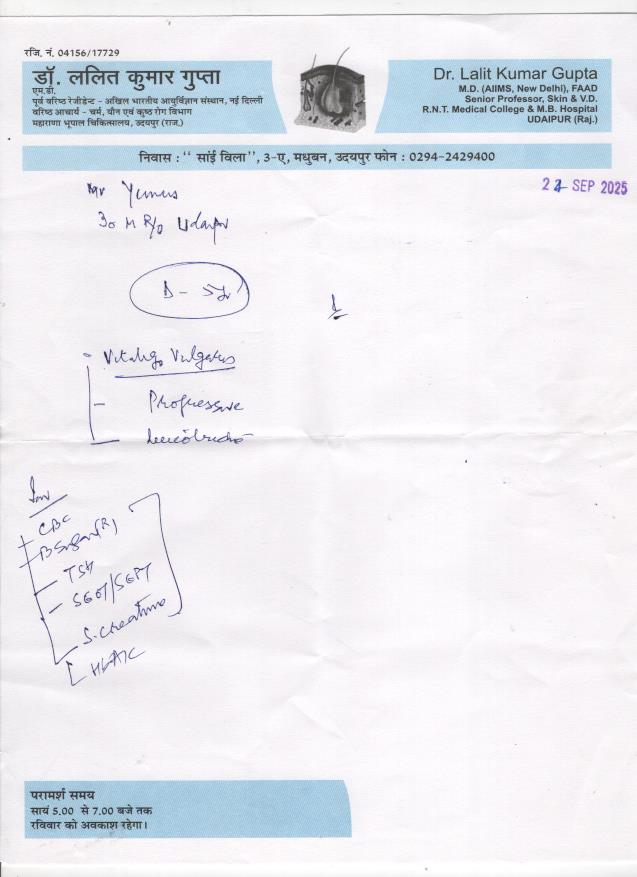 रजि. नं. 04156/17729
डॉ. ललित कुमार गुप्ता
एम.डी.
पूर्व वरिष्ठ रेजीडेन्ट - अखिल भारतीय आयुर्विज्ञान संस्थान, नई दिल्ली
वरिष्ठ आचार्य - चर्म, यौन एवं कुष्ठ रोग विभाग
महाराणा भूपाल चिकित्सालय, उदयपुर (राज.)
Dr. Lalit Kumar Gupta
M.D. (AIIMS, New Delhi), FAAD
Senior Professor, Skin & V.D.
R.N.T. Medical College & M.B. Hospital
UDAIPUR (Raj.)
निवास : ‘‘ सांई विला’’, 3-ए, मधुबन, उदयपुर फोन : 0294-2429400
SEP 2025
Mr Yunus
30 M R/o Udaipur
D - 5yr
Vitiligo Vulgaris
- Progressive
Inv
CBC
B Sugar (R)
TSH
SGOT/SGPT
S. Creatinine
HbA1C
परामर्श समय
सायं 5.00 से 7.00 बजे तक
रविवार को अवकाश रहेगा।